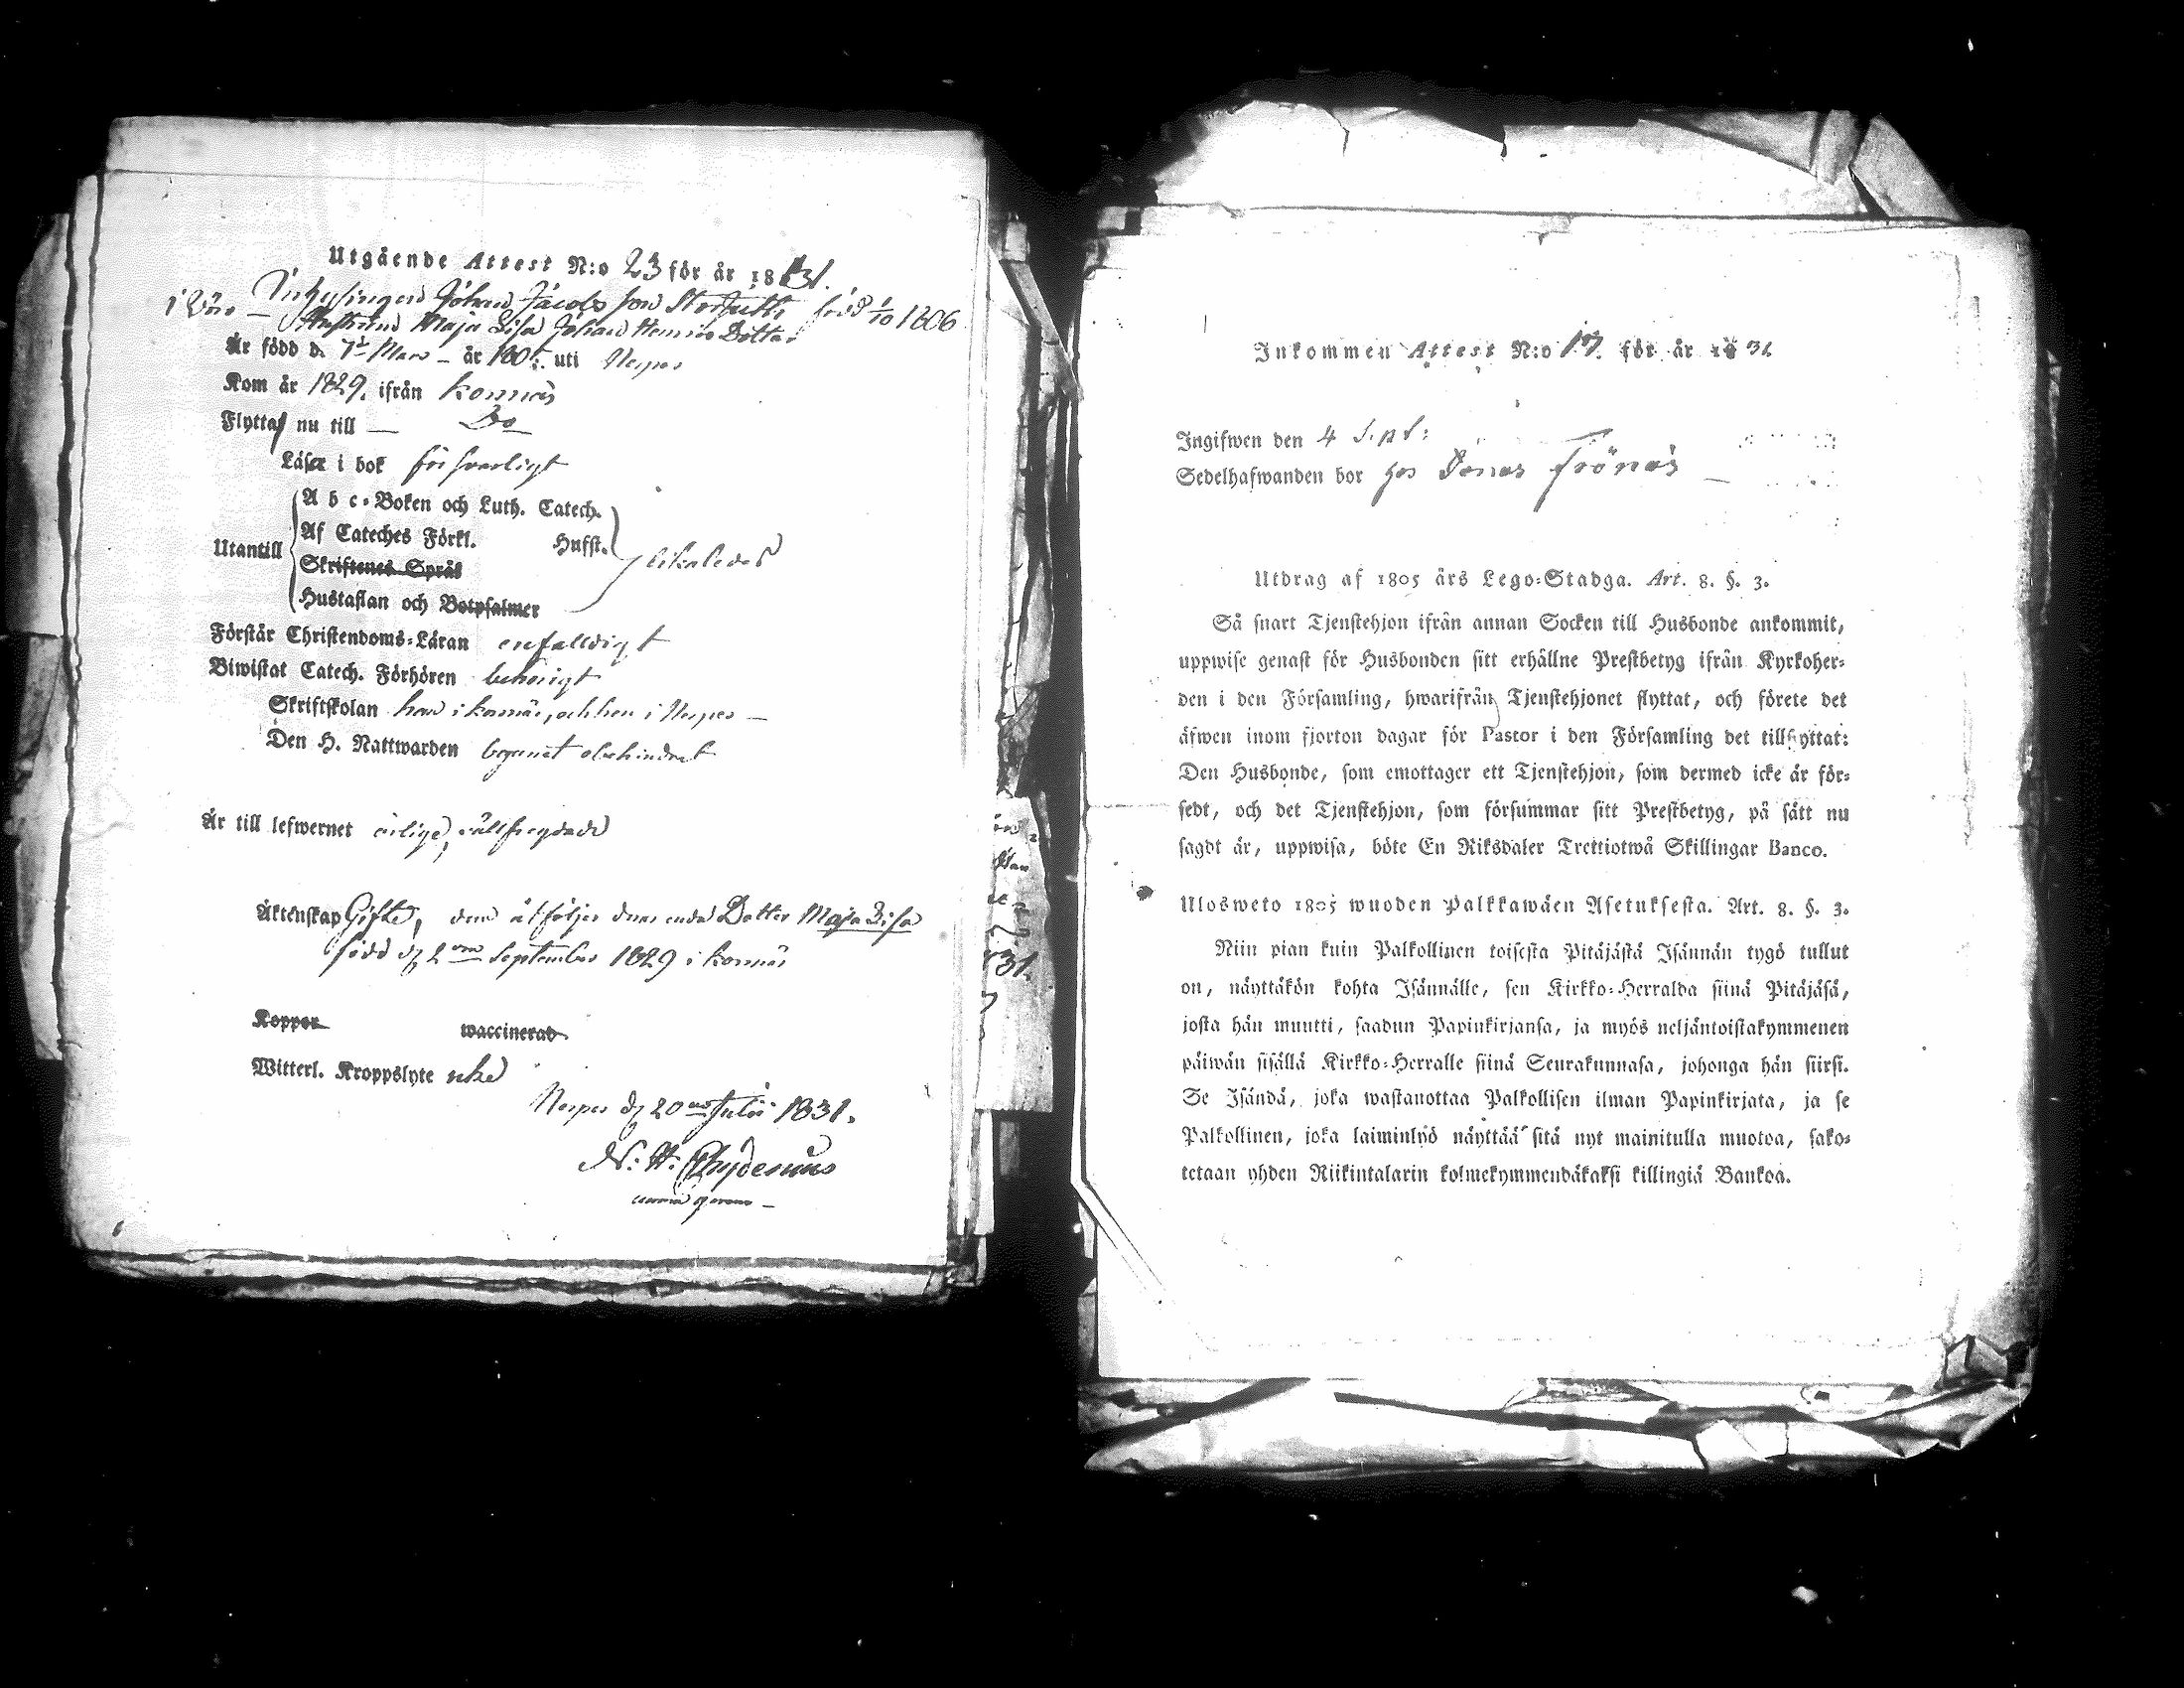 Utgående Attest N:o 23 för år 1831.
Inhysingen Johan Jacobs son född 1/10 1806
i Wörå — Hustrun Maja Lisa Johan Henrics Dotter
Är född d. 7de Mars — år 180 uti Nerpes
Kom år 1829. ifrån Korsnäs
Flytta nu till — Do
Läser i bok försvarligt
Utantill
A b c-Boken och Luth. Catech.
Af Cateches Förkl. Hufst. likaledes
Skriftenes Språk
Hustaflan och Botpsalmer
Förstår Christendoms-Läran enfalldigt
Biwistat Catech. Förhören behörigt
Skriftskolan han i Korsnäs, och hon i Nerpes —
Den H. Nattwarden begynnat obehindrat
Är till lefwernet ärlige, välfregdade
Äktenskap Gifte, dem åtföljer deras enda Dotter Maja Lisa
född d. 2dra September 1829 i Korsnäs
Koppor waccinerad
Witterl. Kroppslyte icke
Nerpes d. 20 Julii 1831.
N: H. Chydenius
Inkommen Attest N:o 17. för år 1831
Ingifwen den 4 Sept:
Sedelhafwanden bor hos Jonas Frönäs —
Utdrag af 1805 års Lego-Stadga. Art. 8. §. 3.
Så snart Tjenstehjon ifrån annan Socken till Husbonde ankommit,
uppwise genast för Husbonden sitt erhållne Prestbetyg ifrån Kyrkoher-
den i den Församling, hwarifrån Tjenstehjonet flyttat, och förete det
äfwen inom fjorton dagar för Pastor i den Församling det tillflyttat:
Den Husbonde, som emottager ett Tjenstehjon, som dermed icke är för-
sedt, och det Tjenstehjon, som försummar sitt Prestbetyg, på sätt nu
sagdt är, uppwisa, böte En Riksdaler Trettiotwå Skillingar Banco.
Ulosweto 1805 wuoden Palkkawäen Asetuksesta. Art. 8. §. 3.
Niin pian kuin Palkollinen toisesta Pitäjästä Isännän tygö tullut
on, näyttäkön kohta Isännälle, sen Kirkko-Herralda siinä Pitäjäsä,
josta hän muutti, saadun Papinkirjansa, ja myös neljäntoistakymmenen
päiwän sisällä Kirkko-Herralle siinä Seurakunnasa, johonga hän siirsi.
Se Isändä, joka wastanottaa Palkollisen ilman Papinkirjata, ja se
Palkollinen, joka laiminlyö näyttää sitä nyt mainitulla muotoa, sako-
tetaan yhden Riikintalarin kolmekymmendäkaksi killingiä Bankoa.